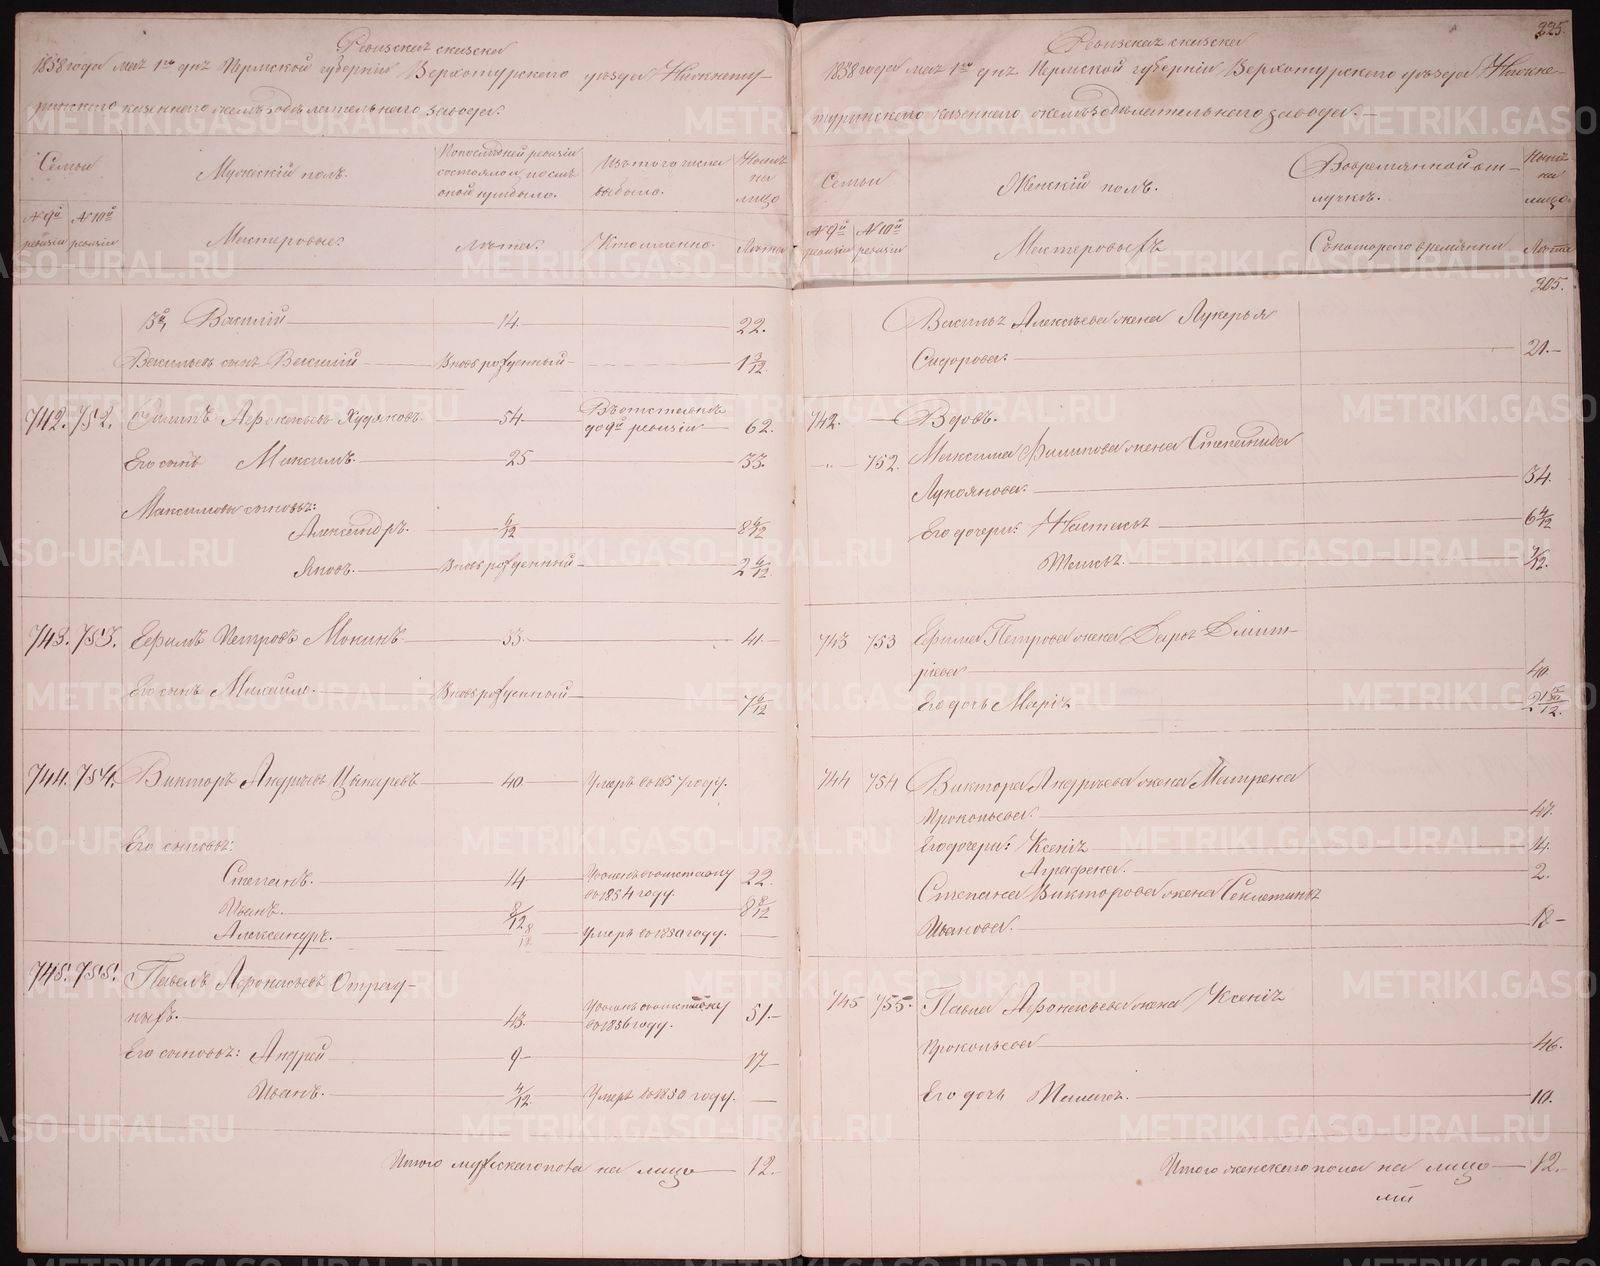 Ревизская сказка
1858 года мая 1го дня Пермской губернии Верхотурского уезда Нижнету-
ринского казеннаго железоделательнаго завода.
Семьи
Мужескій полъ.
По последней ревизіи состояло и после оной прибыло.
Изъ того числа выбыло.
Ныне на лицо
№ 9й ревизіи
№ 10й ревизіи
Мастеровые.
Лета.
Когда именно.
Лета
3й, Василій 14 22.
Васильевъ сынъ Василій Вновь рожденный 1 3/12
742. 752. Филипъ Афонасьевъ Худяковъ 54 Въ отставке до 9й ревизіи 62.
Его сынъ Максимъ. 25 33.
Максимовы сыновья:
Александръ. 6/12 8 6/12
Яковъ. Вновь рожденный 2 6/12.
743. 753. Ефимъ Петровъ Мокинъ 33 41
Его сынъ Михайло. Вновь рожденный 7 6/12
744. 754. Викторъ Андреевъ Цыкаревъ 40 Умеръ въ 1857 году.
Его сыновья:
Степанъ. 14 Уволенъ въ отставку въ 1854 году. 22.
Иванъ. 8/12 8 8/12
Александръ. 8/12 Умеръ въ 1850 году.
745. 755. Павелъ Афонасьевъ Отрад-
ныхъ. 43. Уволенъ въ отставку въ 1856 году. 51.
Его сыновья: Андрей 9 17
Иванъ. 4/12 Умеръ въ 1850 году.
Итого мужескаго пола на лицо 12.
225.
Ревизская сказка
1858 года мая 1го дня Пермской губерніи Верхотурского уезда Нижне-
туринского казеннаго железоделательнаго завода.
Семьи
Женскій полъ.
Во временной от-
лучке.
Ныне на лицо
№ 9й ревизіи
№ 10й ревизіи
Мастеровыхъ
Съ котораго времени
Лета
205.
Василья Алексеева жена Лукерья
Сидорова. 21.
742. Вдовъ.
752. Максима Филипова жена Степанида
Лукоянова. 34.
Его дочери: Настасья 6 4/12
7/12.
743 753 Ефима Петрова жена Дарья Дмит-
ріева 40
Его дочь Марія
744 754 Виктора Андреева жена Матрена
Прокопьева. 47.
Его дочери: Ксенія 14.
Аграфена. 2.
Степана Викторова жена Секлетинья
Иванова. 18
745 755. Павла Афонасьева жена Ксенія
Прокопьева 46.
Его дочь Пелагея. 10.
Итого женскаго пола на лицо 12.
METRIKI.GASO-URAL.RU